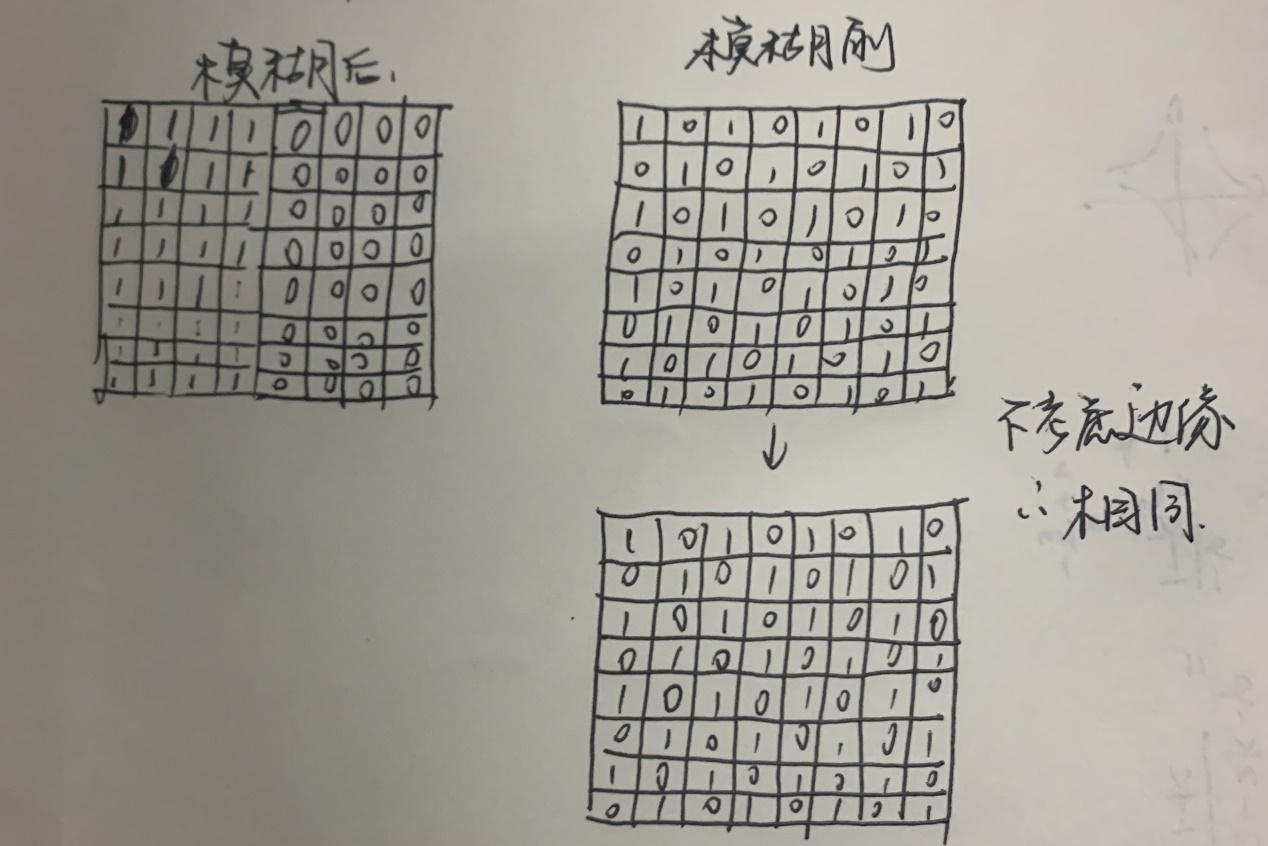 模糊后.
1 1 1 1 0 0 0 0
1 1 1 0 0 0 0
1 1 1 1 0 0 0 0
1 1 1 1 0 0 0 0
1 1 1 1 0 0 0 0
1 1 1 1 0 0 0 0
1 1 1 1 0 0 0 0
1 1 1 1 0 0 0 0
模糊前
1 0 1 0 1 0 1 0
0 1 0 1 0 1 0 1
1 0 1 0 1 0 1 0
0 1 0 1 0 1 0 1
1 0 1 0 1 0 1 0
0 1 0 1 0 1 0 1
1 0 1 0 1 0 1 0
0 1 0 1 0 1 0 1
↓
1 0 1 0 1 0 1 0
0 1 0 1 0 1 0 1
1 0 1 0 1 0 1 0
0 1 0 1 0 1 0 1
1 0 1 0 1 0 1 0
0 1 0 1 0 1 0 1
1 0 1 0 1 0 1 0
0 1 0 1 0 1 0 1
不考虑边缘
∴相同.